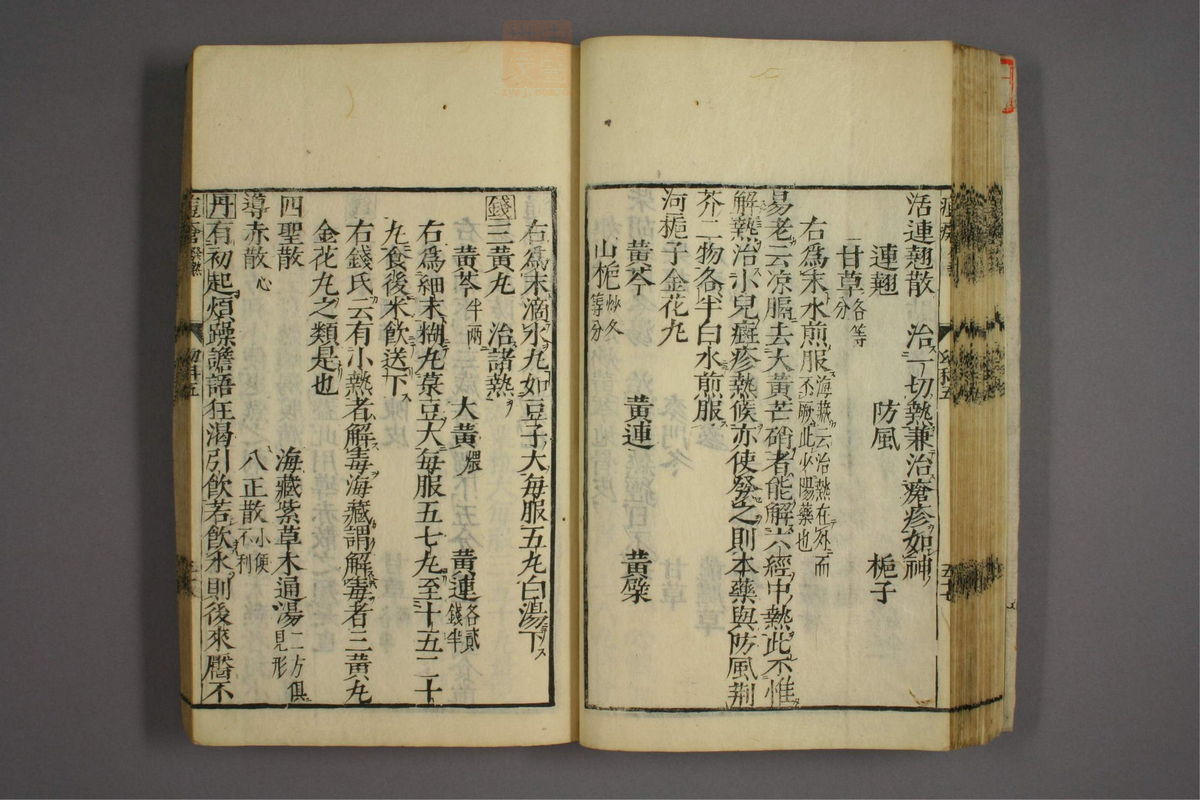 活連翹散　治一切熱兼治瘡疹如神
連翹　防風　梔子
甘草各等分
右爲末水煎服海藏云治熱在外而不厥此少陽藥也
易老云凉膈去大黄芒硝者能解六經中熱此不惟
解熱治小兒癍疹熱候亦使發之則本藥與防風荆
芥二物各半白水煎服
河梔子金花丸
黄芩　黄連　黄檗
山梔炒各等分
右爲末滴水丸如豆子大每服五丸白湯下
錢三黄丸　治諸熱
黄芩半兩　大黄煨　黄連各貳錢半
右爲細末糊丸菉豆大每服五七丸至十五二十
丸食後米飲送下
右錢氏云有小熱者解毒海藏謂解毒者三黄丸
金花丸之類是也
四聖散　海藏紫草木通湯二方俱見形
導赤散心　八正散小便不利
丹有初起煩躁譫語狂渴引飲若飲水則後來靨不